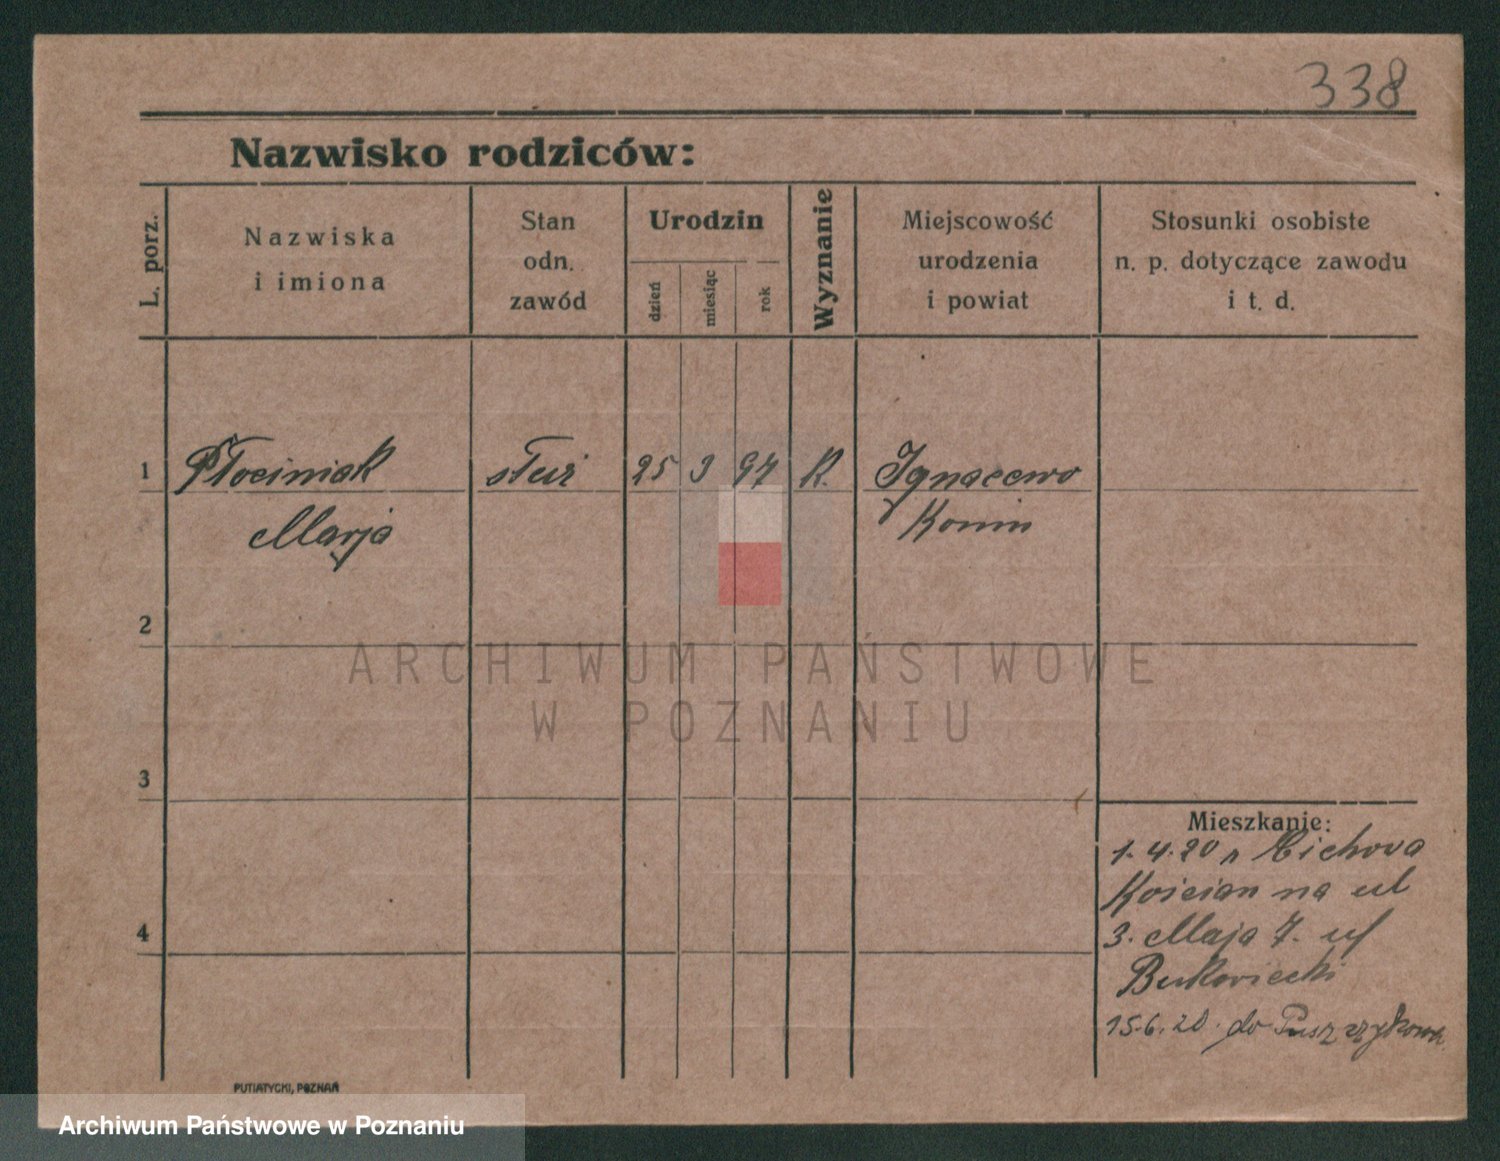 338
Nazwisko rodziców:
L. porz.
Nazwiska
i imiona
Stan
odn.
zawód
Urodzin
dzień
miesiąc
rok
Wyznanie
Miejscowość
urodzenia
i powiat
Stosunki osobiste
n. p. dotyczące zawodu
i t. d.
1
Płociniak
służ
25
3
97
K.
Ignacewo
Marja
Konin
2
ARCHIWUM PAŃSTWOWE
W POZNANIU
3
4
Mieszkanie:
1. 4. 20 Cichova
Kościan na ul
3. Maja 7.
Bukoviecki
15.6.20. do Puszczykowa
PUTIATYCKI, POZNAŃ
Archiwum Państwowe w Poznaniu